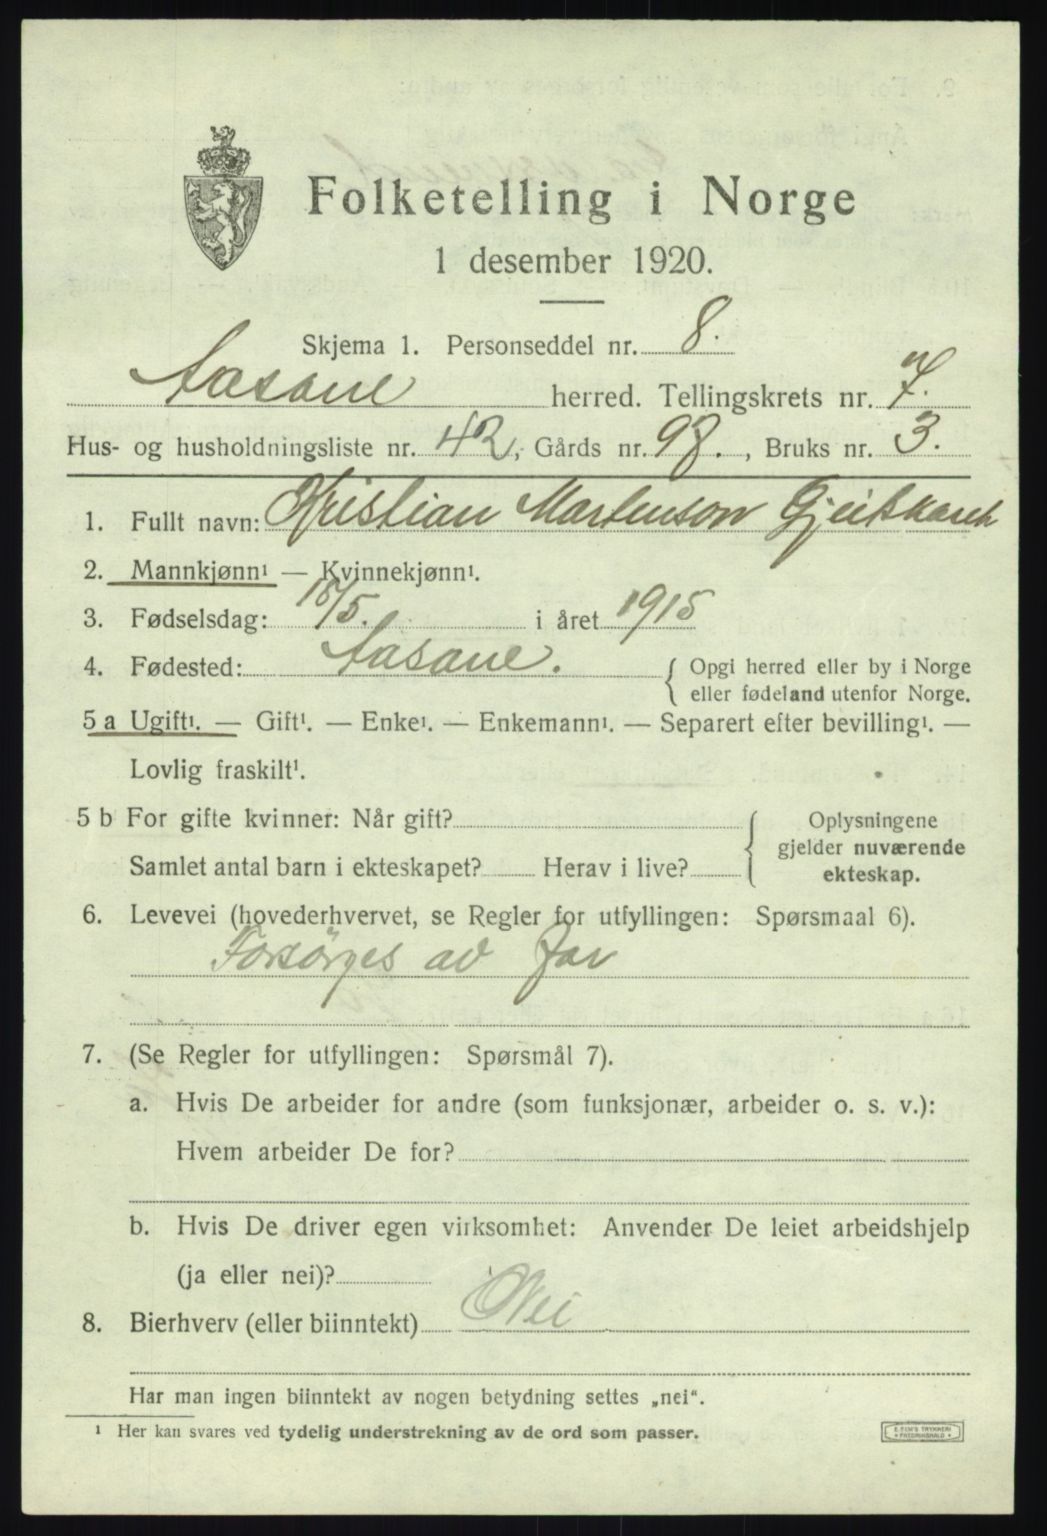 Folketelling i Norge
1 desember 1920.
Skjema 1. Personseddel nr. 8.
Aasane herred. Tellingskrets nr. 7.
Hus- og husholdningsliste nr. 42, Gårds nr. 98., Bruks nr. 3.
1. Fullt navn: Kristian Martenson
2. Mannkjønn¹ — Kvinnekjønn¹.
3. Fødselsdag: /5. i året 1915
4. Fødested: Aasane. { Opgi herred eller by i Norge
eller fødeland utenfor Norge.
5 a Ugift¹. — Gift¹. — Enke¹. — Enkemann¹. — Separert efter bevilling¹. —
Lovlig fraskilt¹.
5 b For gifte kvinner: Når gift?
Samlet antal barn i ekteskapet? Herav i live?
{ Oplysningene
gjelder nuværende
ekteskap.
6. Levevei (hovederhvervet, se Regler for utfyllingen: Spørsmaal 6).
Forsørges av far
7. (Se Regler for utfyllingen: Spørsmål 7).
a. Hvis De arbeider for andre (som funksjonær, arbeider o. s. v.):
Hvem arbeider De for?
b. Hvis De driver egen virksomhet: Anvender De leiet arbeidshjelp
(ja eller nei)?
8. Bierhverv (eller biinntekt) Nei
Har man ingen biinntekt av nogen betydning settes „nei“.
¹ Her kan svares ved tydelig understrekning av de ord som passer.
TRYKKERI
FREDRIKSHALD